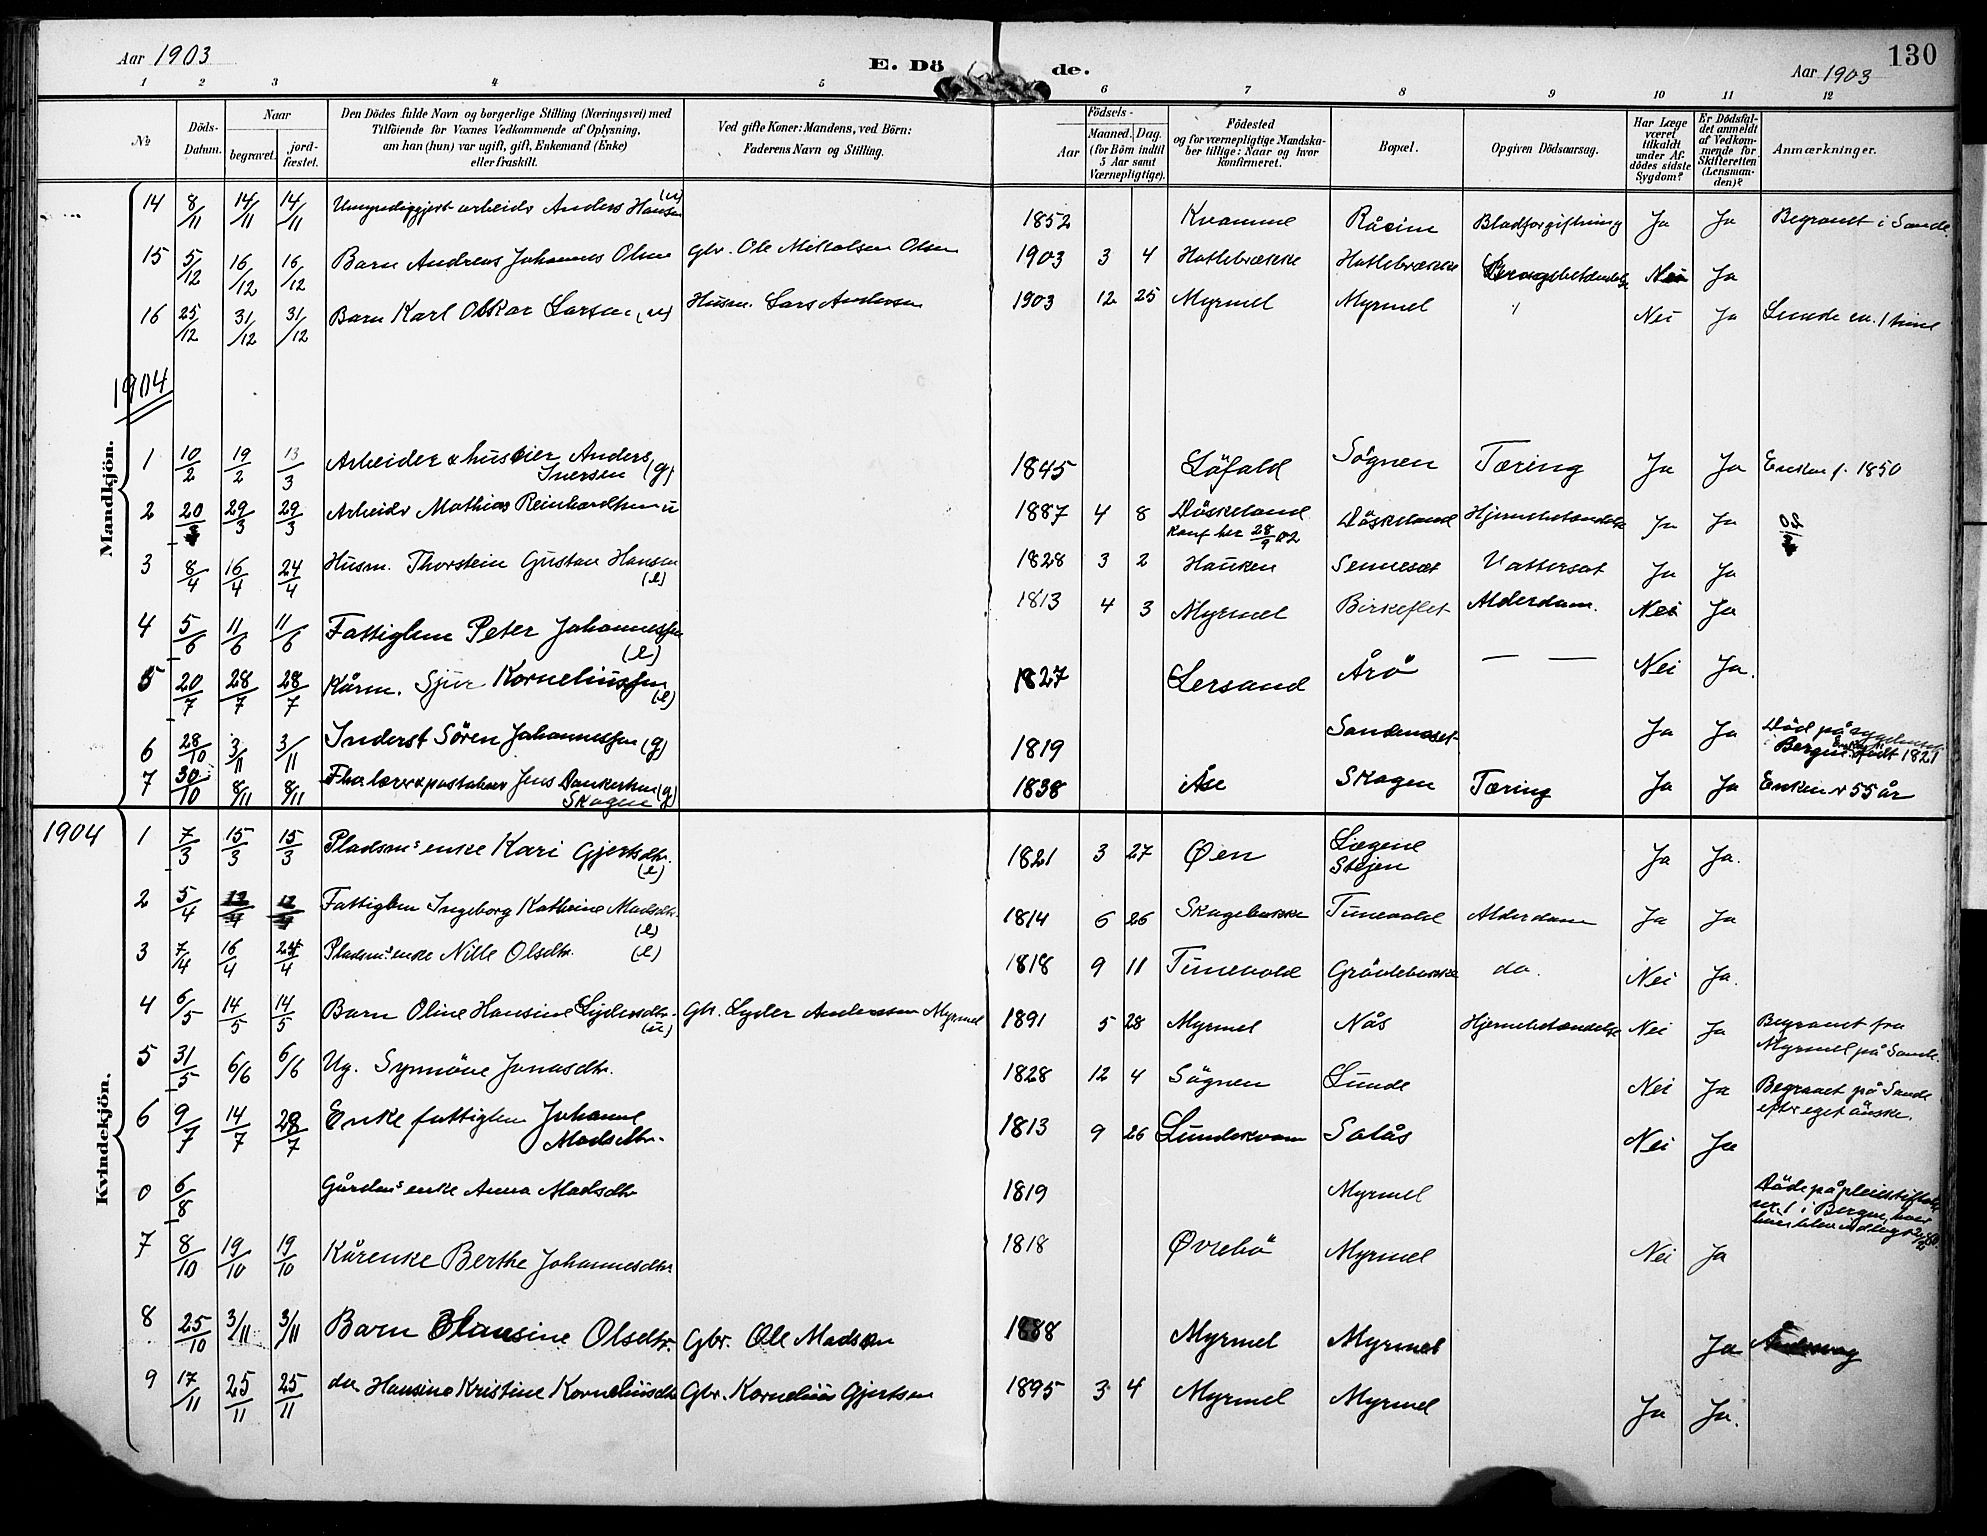 Aar 1903
E. Dö de.
130
Aar 1903
1 2 3 4 5 6 7 8 9 10 11 12
No
Döds-Datum.
Naar
begravet. jord-fæstet.
Den Dödes fulde Navn og borgerlige Stilling (Næringsvei) med
Tilföiende for Voxnes Vedkommende af Oplysning,
om han (hun) var ugift, gift, Enkemand (Enke)
eller fraskilt.
Ved gifte Koner: Mandens, ved Börn:
Faderens Navn og Stilling.
Födsels-
Aar Maaned. Dag.
(for Börn indtil
5 Aar samt
Værnepligtige).
Födested
og for værnepligtige Mandska-
ber tillige: Naar og hvor
konfirmeret.
Bopæl.
Opgiven Dödsaarsag.
Har Læge
været
tilkaldt
under Af-
dödes sidste
Sygdom?
Er Dödsfal-
det anmeldt
af Vedkom-
mende for
Skifteretten
(Lensman-
den)?
Anmærkninger.
Mandkjön.
14 8/11 14/11 14/11 arbeids Anders Hansen (u) 1852 Kvamme Råsim Blodforgiftning Ja Ja Begravet i Sande.
15 5/12 16/12 16/12 Barn Andreas Johannes Olsen Gbr. Ole Mikalsen Olsen 1903 3 4 Hatlebrække Hatlebrække Nei Ja
16 25/12 31/12 31/12 Barn Karl Oskar Larsen (u) Husm. Lars Andersen 1903 12 25 Myrmel Myrmel Nei Ja Levede en. 1 time
1904
1 10/2 19/2 13/3 Arbeider & huseier Anders
Iversen (g) 1845 Löfald Sögnen Tæring Ja Ja Enken f. 1850
2 20/3 29/3 29/3 Arbeids Mathias Reinhardtsen u 1887 4 8 Döskeland
Konf her 28/9 02 Döskeland Hjernebetændelse Ja Ja 20/3
3 8/4 16/4 24/4 Husm. Thorstein Gustav Hansen
(e) 1828 3 2 Hauken Sennesæt Vattersot Ja Ja
4 5/6 11/6 11/6 Fattiglem Peter Johannessen
(e) 1813 4 3 Myrmel Birkeflet Alderdom. Nei Ja
5 20/7 28/7 28/7 Kårm. Sjur Korneliussen
(e) 1827 Lersand Årö — — Nei Ja.
6 28/10 3/11 3/11 Inderst Sören Johannessen (g) 1819 Sandeneset Ja Ja Död på
i Bergen. Enken född 1821
7 30/10 8/11 8/11 postaabner Jens Dankertsen (g)
Skagen 1838 Åse Skagen Tæring Ja Ja Enken v 55 år
1904
Kvindekjön.
1 7/3 15/3 15/3 Pladsms enke Kari Gjertsdtr.
(e) 1821 3 27 Øen Liegene
Steien Ja Ja.
2 5/4 12/4 12/4 Fattiglem Ingeborg Kathrine Madsdtr.
(e) 1814 6 26 Skagebække Tunevold Alderdom Ja Ja
3 7/4 16/4 24/4 Pladsms enke Nille Olsdtr. (e) 1818 9 11 Tunevold Grövlebække do. Nei Ja.
4 6/5 14/5 14/5 Barn Oline Hansine Lydersdtr.
(u) Gbr. Lyder Andersen Myrmel 1891 5 28 Myrmel Nås Hjernebetændelse Nei Ja Begravet fra
Myrmel på Sande.
5 31/5 6/6 6/6 Ug. Synnöve Jonasdtr. 1828 12 4 Sögnen Lunde Nei Ja Begravet på Sande
efter eget önske.
6 9/7 14/7 28/7 Enke fattiglem Johanne
Madsdtr. 1813 9 26 Lundekvam Solås Nei Ja
0 6/8 Gårdms enke Anna Madsdtr 1819 Myrmel Döde på pleiestiftelse
nr. 1 i Bergen, hvor
7 8/10 19/10 19/10 Kårenke Berthe Johannesdtr. 1818 Øvrebö Myrmel Nei Ja
8 25/10 3/11 3/11 Barn Olausine Olsdtr. Gbr. Ole Madsen 1888 Myrmel Myrmel Ja
9 17/11 25/11 25/11 do Hansine Kristine Korneliusdtr Gbr. Kornelius Gjertsen 1895 3 4 Myrmel Myrmel Ja Ja.